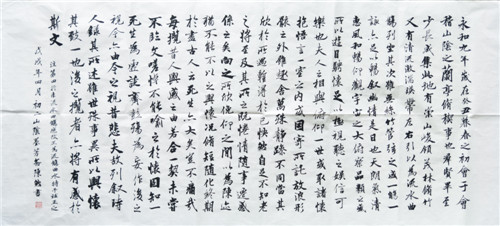 永和九年歲在癸丑暮春之初會于會
稽山陰之蘭亭脩禊事也羣賢畢至
少長咸集此地有崇山峻領茂林脩竹
又有清流激湍暎帶左右引以為流水曲
觴列坐其次雖無絲竹管弦之盛一觴一
詠亦足以暢叙幽情是日也天朗氣清
惠風和暢仰觀宇宙之大俯察品類之盛
所以遊目騁懷足以極視聽之娛信可
樂也夫人之相與俯仰一世或取諸懷
抱悟言一室之内或因寄所託放浪形
骸之外雖趣舍萬殊静躁不同當其
欣於所遇暫得於己怏然自足不知老
之將至及其所之既惓情隨事遷感慨
係之矣向之所欣俛仰之間以為陳迹
猶不能不以之興懷況脩短隨化終期
於盡古人云死生亦大矣豈不痛哉
每攬昔人興感之由若合一契未嘗
不臨文嗟悼不能喻之於懷固知一
死生為虛誕齊彭殤為妄作後之
視今亦由今之視昔悲夫故列叙時
人錄其所述雖世殊事異所以興懷
其致一也後之攬者亦將有感於
斯文
戊戌年四月初